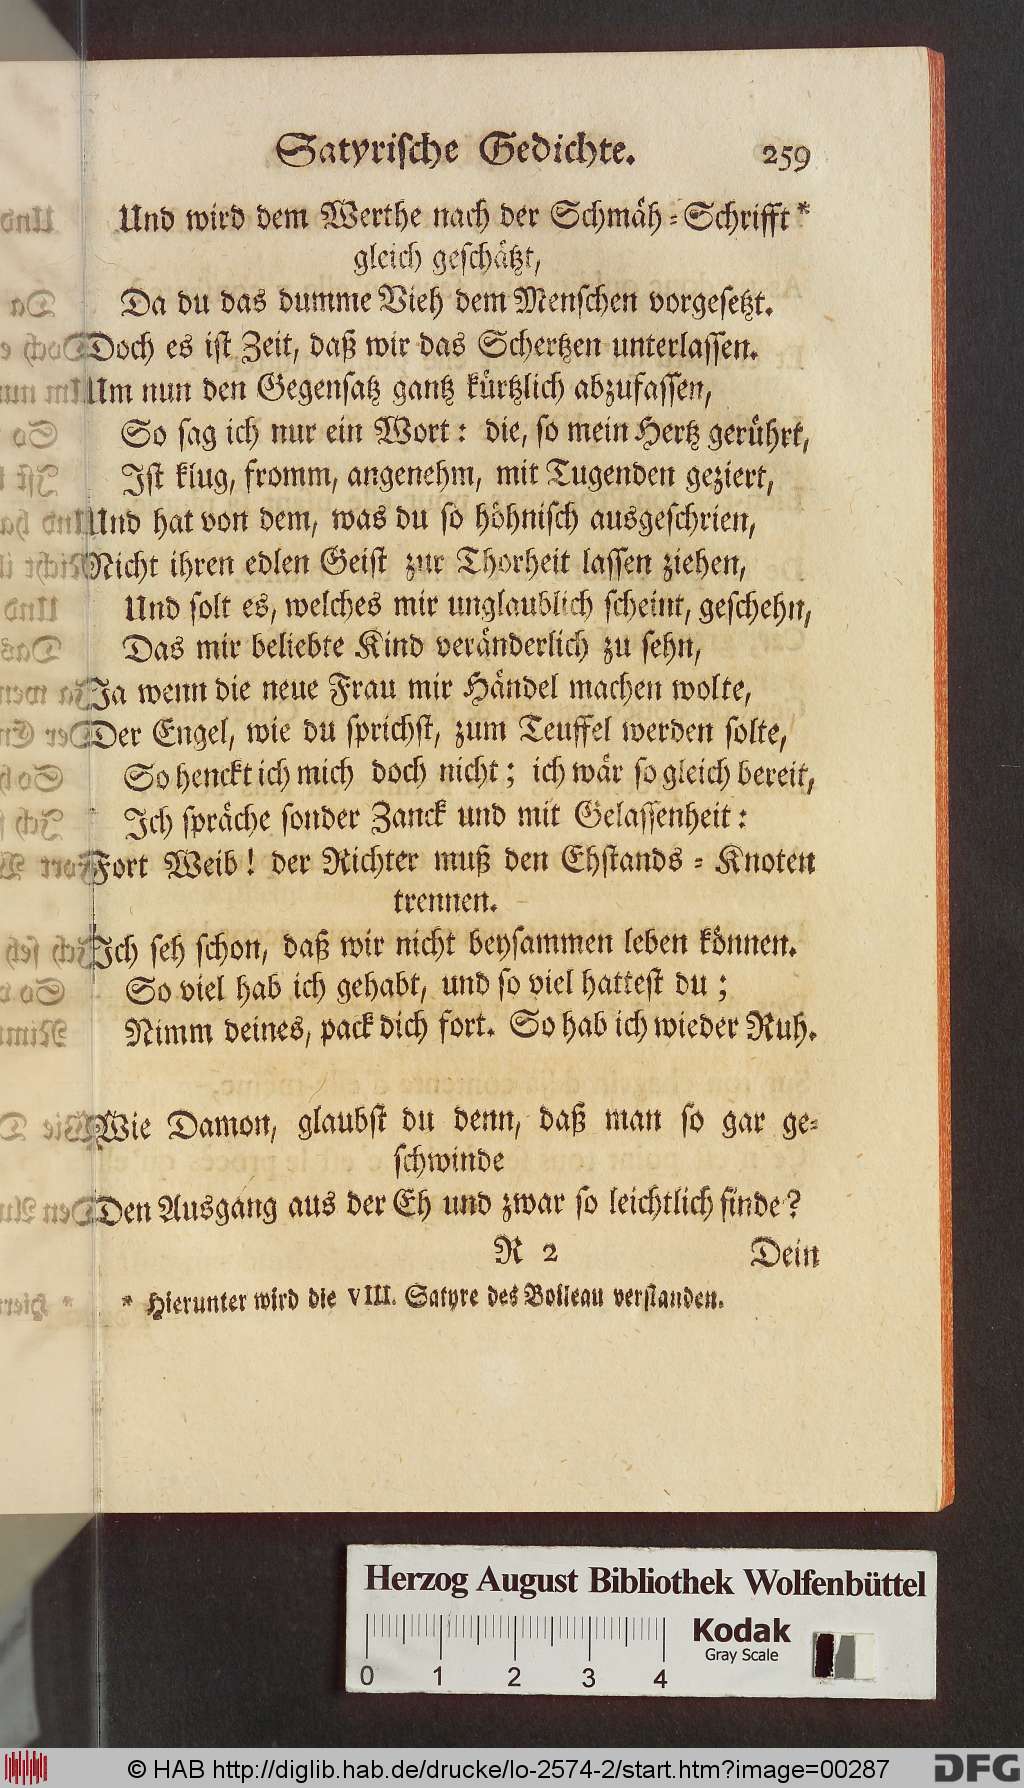 Satyrische Gedichte. 259
Und wird dem Werthe nach der Schmäh-Schrifft *
gleich geschätzt,
Da du das dumme Vieh dem Menschen vorgesetzt.
Doch es ist Zeit, daß wir das Schertzen unterlassen.
Um nun den Gegensatz gantz kürtzlich abzufassen,
So sag ich nur ein Wort: die, so mein Hertz gerührt,
Ist klug, fromm, angenehm, mit Tugenden geziert,
Und hat von dem, was du so höhnisch ausgeschrien,
Nicht ihren edlen Geist zur Thorheit lassen ziehen,
Und solt es, welches mir unglaublich scheint, geschehn,
Das mir beliebte Kind veränderlich zu sehn,
Ja wenn die neue Frau mir Händel machen wolte,
Der Engel, wie du sprichst, zum Teuffel werden solte,
So henckt ich mich doch nicht; ich wär so gleich bereit,
Ich spräche sonder Zanck und mit Gelassenheit:
Fort Weib! der Richter muß den Ehstands-Knoten
trennen.
Ich seh schon, daß wir nicht beysammen leben können.
So viel hab ich gehabt, und so viel hattest du;
Nimm deines, pack dich fort. So hab ich wieder Ruh.
Wie Damon, glaubst du denn, daß man so gar ge-
schwinde
Den Ausgang aus der Eh und zwar so leichtlich finde?
R 2 Dein
* Hierunter wird die VIII. Satyre des Boileau verstanden.
Herzog August Bibliothek Wolfenbüttel
Kodak
Gray Scale
0 1 2 3 4
© HAB http://diglib.hab.de/drucke/lo-2574-2/start.htm?image=00287
DFG